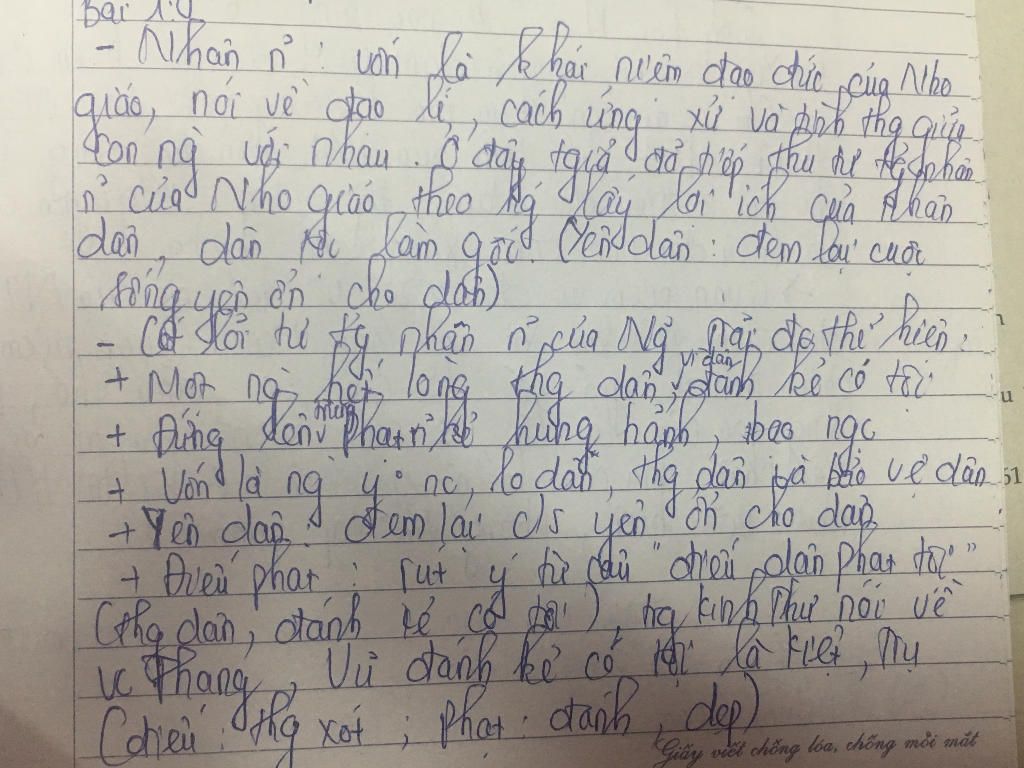 Bài 1.9
- Nhân n̉ : vốn là khái niệm đạo đức của Nho
giáo, nói về đạo lí, cách ứng xử và tình thg giữa
con ng với nhau. Ở đây tgiả đã tiếp thu tư tg nhân
n̉ của Nho giáo theo hg lấy lợi ích của nhân
dân, dân tộc làm gốc. (Yên dân : đem lại cuộc
sống yên ổn cho dân)
- Cốt lõi tư tg nhân n̉ của Ng Trãi đc thể hiện :
+ Một ng hết lòng thg dân, vì dân đánh kẻ có tội
+ Đứng lên phạt kẻ hung hãnh, bạo ngc
+ Vốn là ng y nc, lo dân, thg dân và bảo vệ dân
+ Yên dân : đem lại c/s yên ổn cho dân
+ Điếu phạt : rút ý từ câu "điếu dân phạt tội"
(thg dân, đánh kẻ có tội), tg Kinh Thư nói về
vc Thang, Vũ đánh kẻ có tội là Kiệt, Trụ
(điếu : thg xót ; phạt : đánh, dẹp)
Giấy viết chống lóa, chống mỏi mắt
51
u